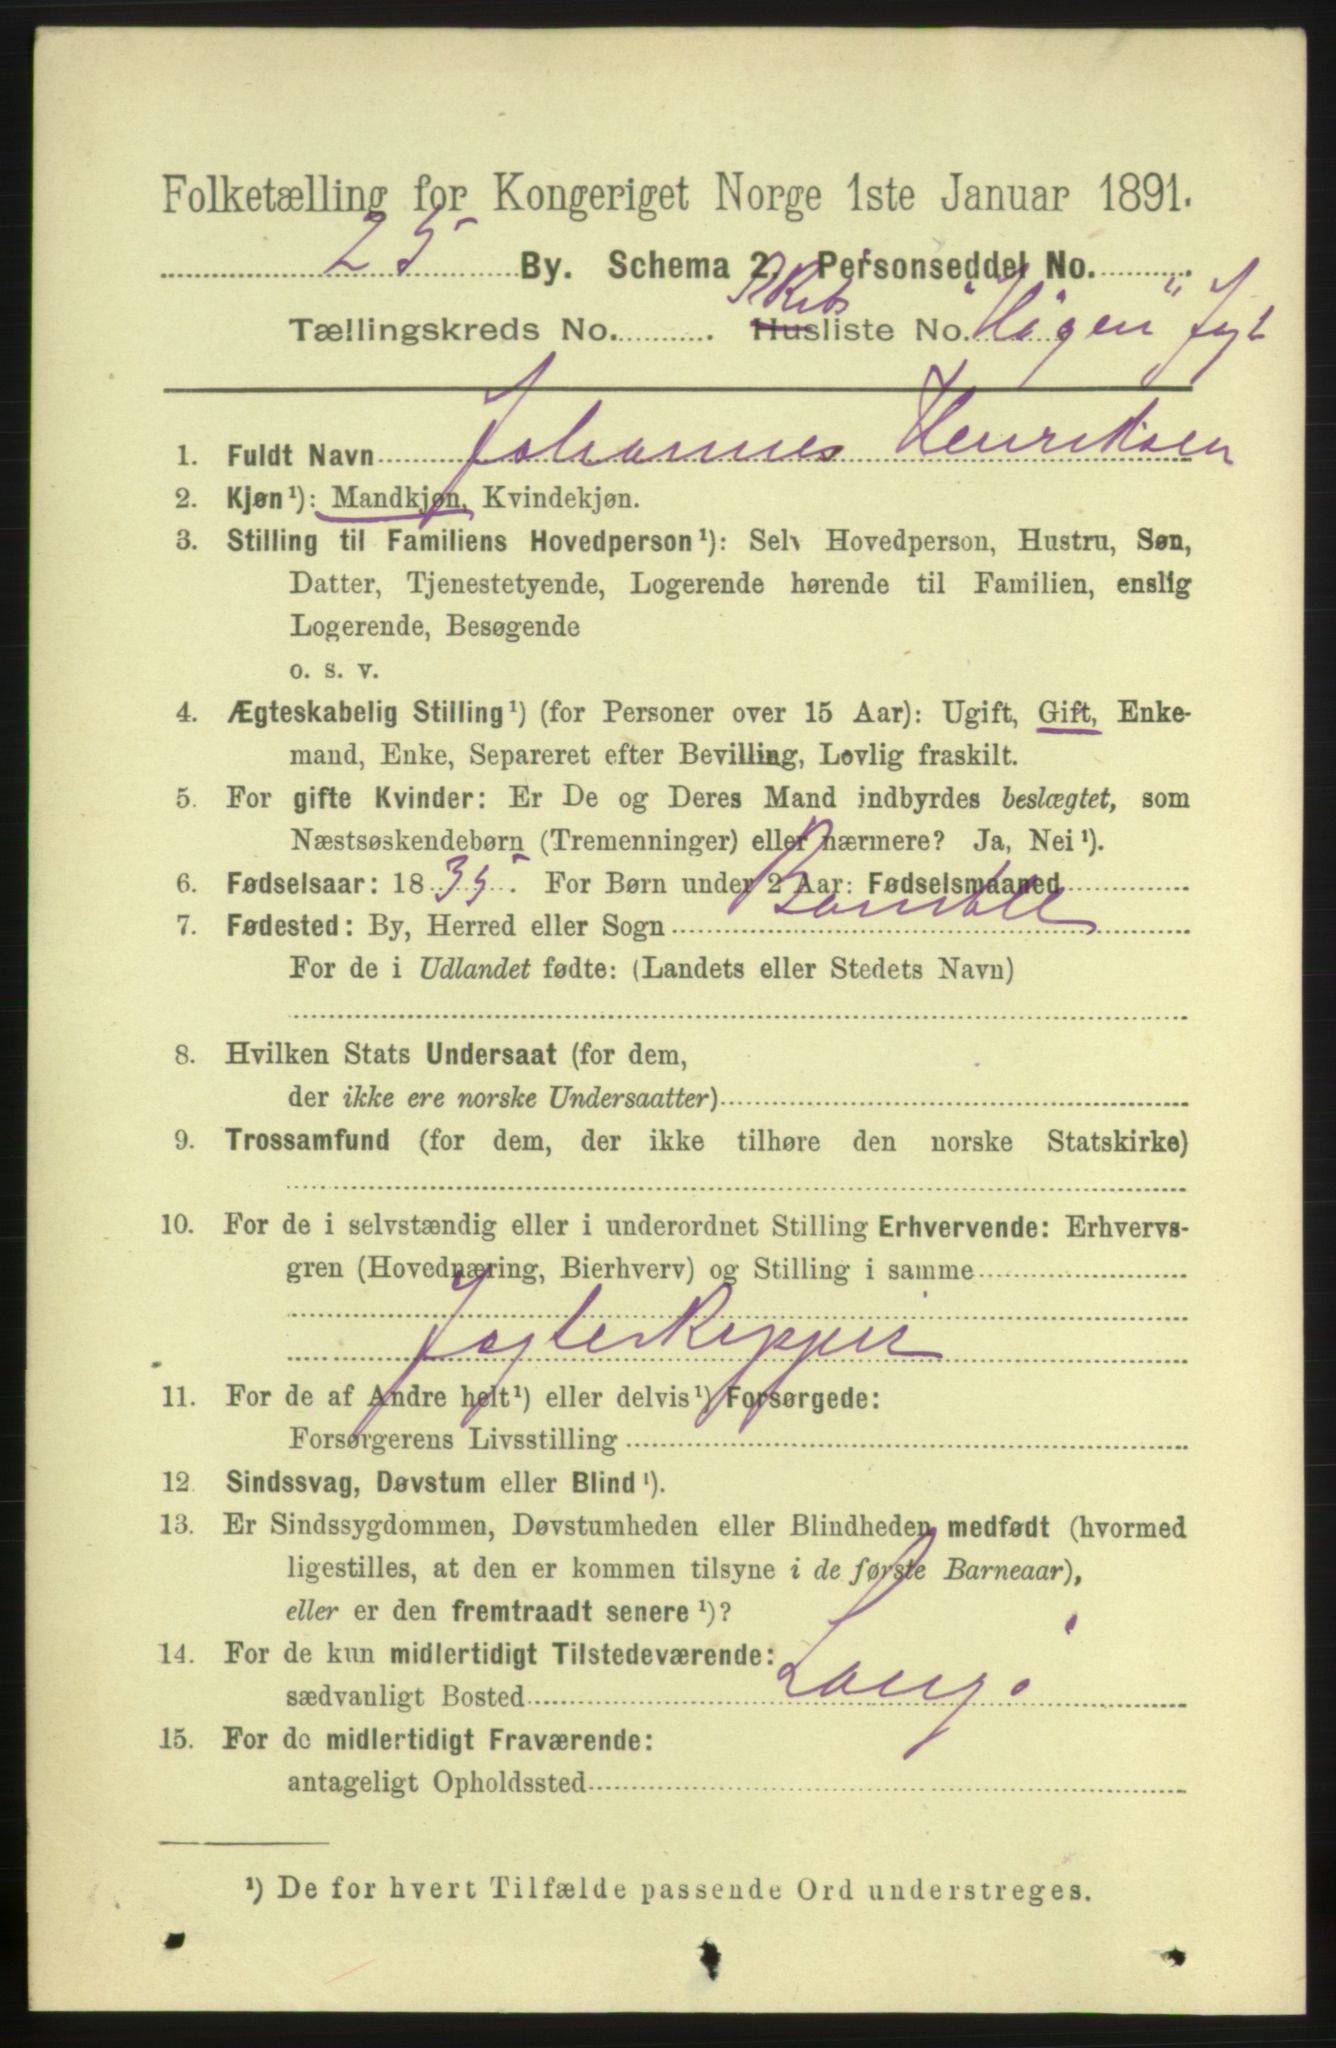 Folketælling for Kongeriget Norge 1ste Januar 1891.
25 By. Schema 2. Personseddel No.
Tællingskreds No. Skibs Husliste No. "Hågen" Jagt
1. Fuldt Navn Johannes Henriksen
2. Kjøn¹): Mandkjøn, Kvindekjøn.
3. Stilling til Familiens Hovedperson¹): Selv Hovedperson, Hustru, Søn,
Datter, Tjenestetyende, Logerende hørende til Familien, enslig
Logerende, Besøgende
o. s. v.
4. Ægteskabelig Stilling¹) (for Personer over 15 Aar): Ugift, Gift, Enke-
mand, Enke, Separeret efter Bevilling, Lovlig fraskilt.
5. For gifte Kvinder: Er De og Deres Mand indbyrdes beslægtet, som
Næstsøskendebørn (Tremenninger) eller nærmere? Ja, Nei¹).
6. Fødselsaar: 1835. For Børn under 2 Aar: Fødselsmaaned
7. Fødested: By, Herred eller Sogn Bamble
For de i Udlandet fødte: (Landets eller Stedets Navn)
8. Hvilken Stats Undersaat (for dem,
der ikke ere norske Undersaatter)
9. Trossamfund (for dem, der ikke tilhøre den norske Statskirke)
10. For de i selvstændig eller i underordnet Stilling Erhvervende: Erhvervs-
gren (Hovednæring, Bierhverv) og Stilling i samme
Jagteskipper
11. For de af Andre helt¹) eller delvis¹) Forsørgede:
Forsørgerens Livsstilling
12. Sindssvag, Døvstum eller Blind¹).
13. Er Sindssygdommen, Døvstumheden eller Blindheden medfødt (hvormed
ligestilles, at den er kommen tilsyne i de første Barneaar),
eller er den fremtraadt senere¹)?
14. For de kun midlertidigt Tilstedeværende:
sædvanligt Bosted Langø
15. For de midlertidigt Fraværende:
antageligt Opholdssted
¹) De for hvert Tilfælde passende Ord understreges.